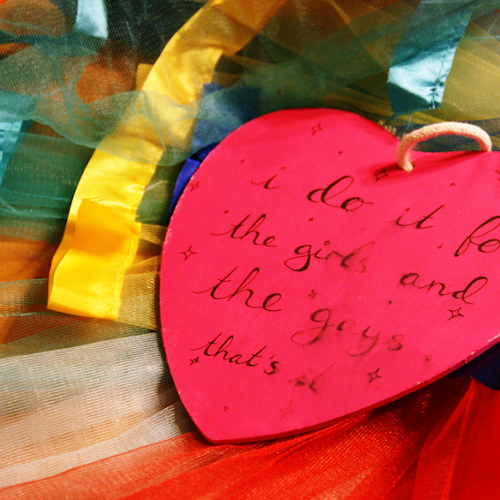 i do it fo
the girls and
the gays
that's it